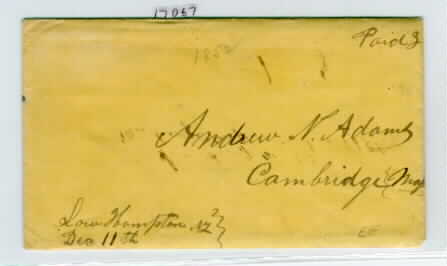 17057
Paid 3
1852
Andrew N. Adams
Cambridge Mass
Low Hampton NY
Dec 11th